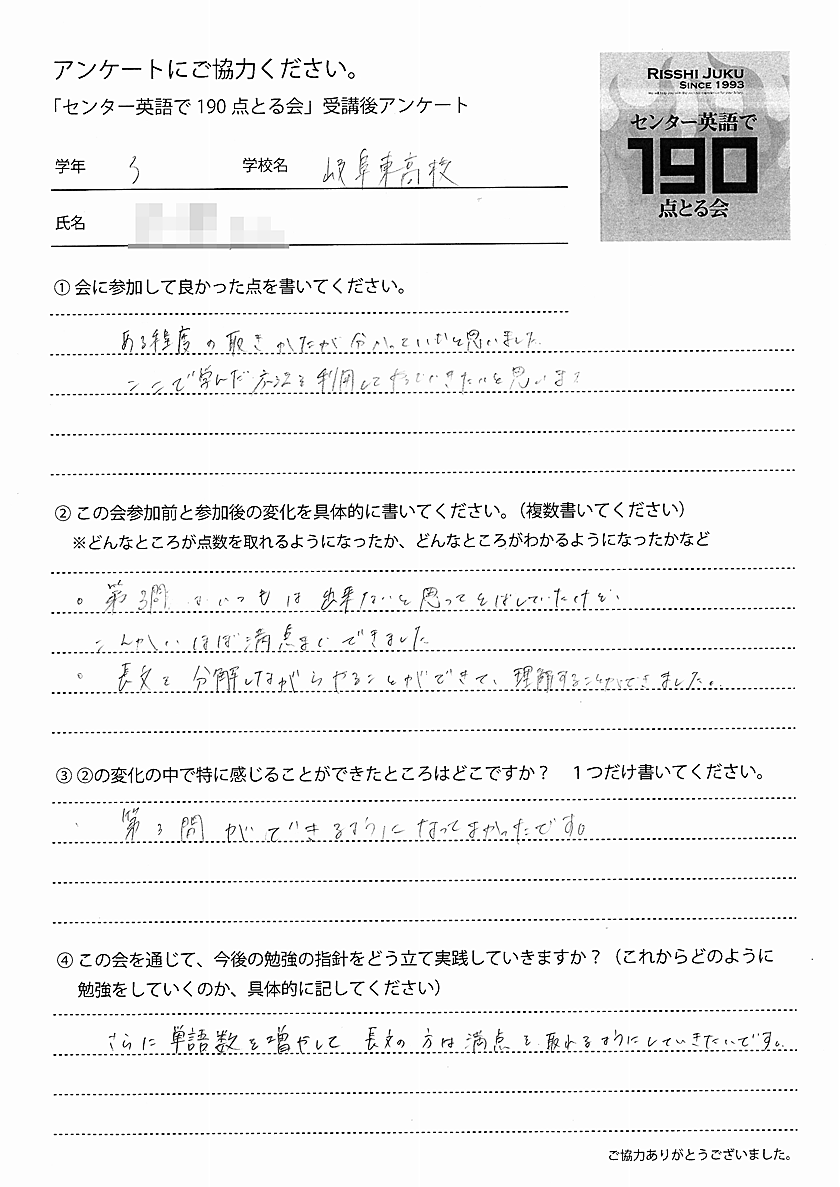 アンケートにご協力ください。
「センター英語で 190 点とる会」受講後アンケート
RISSHI JUKU
SINCE 1993
センター英語で
190
点とる会
学年 3 学校名 岐阜東高校
氏名
① 会に参加して良かった点を書いてください。
ある程度の取きかたが分かっていいなと思いました。
ここで学んだ方法を利用して いきたいと思います
② この会参加前と参加後の変化を具体的に書いてください。（複数書いてください）
※どんなところが点数を取れるようになったか、どんなところがわかるようになったかなど
。第3問 はいつもは 出来ないと思ってとばしていたけど、
こんかいはほぼ満点までできました
。長文を分解しながらやることができて、理解することができました。
③ ②の変化の中で特に感じることができたところはどこですか？ １つだけ書いてください。
・ 第3問ができるようになってよかったです。
④ この会を通じて、今後の勉強の指針をどう立て実践していきますか？（これからどのように
勉強をしていくのか、具体的に記してください）
さらに単語数を増やして 長文の方は満点を取れるようにしていきたいです。
ご協力ありがとうございました。